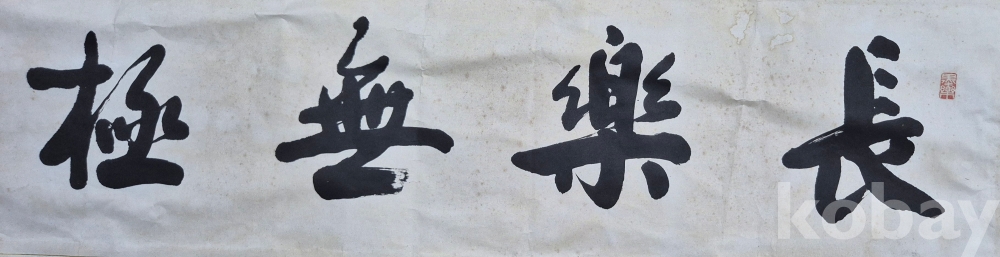 長樂無極
kobay